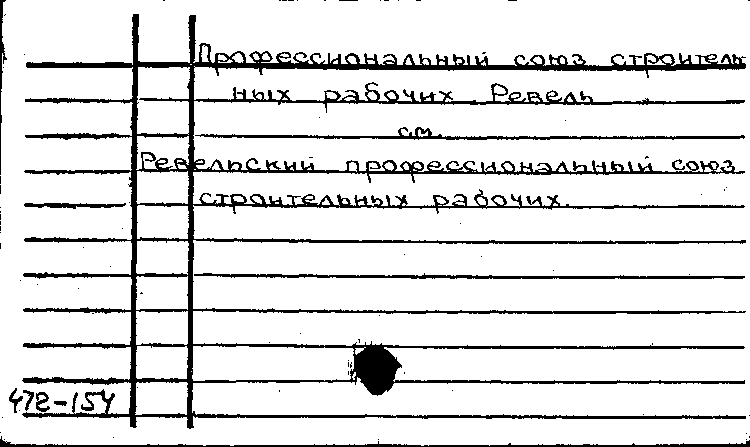 Профессиональный союз строитель
ных рабочих Ревель
см.
Ревельский профессиональный союз
строительных рабочих.
472-154